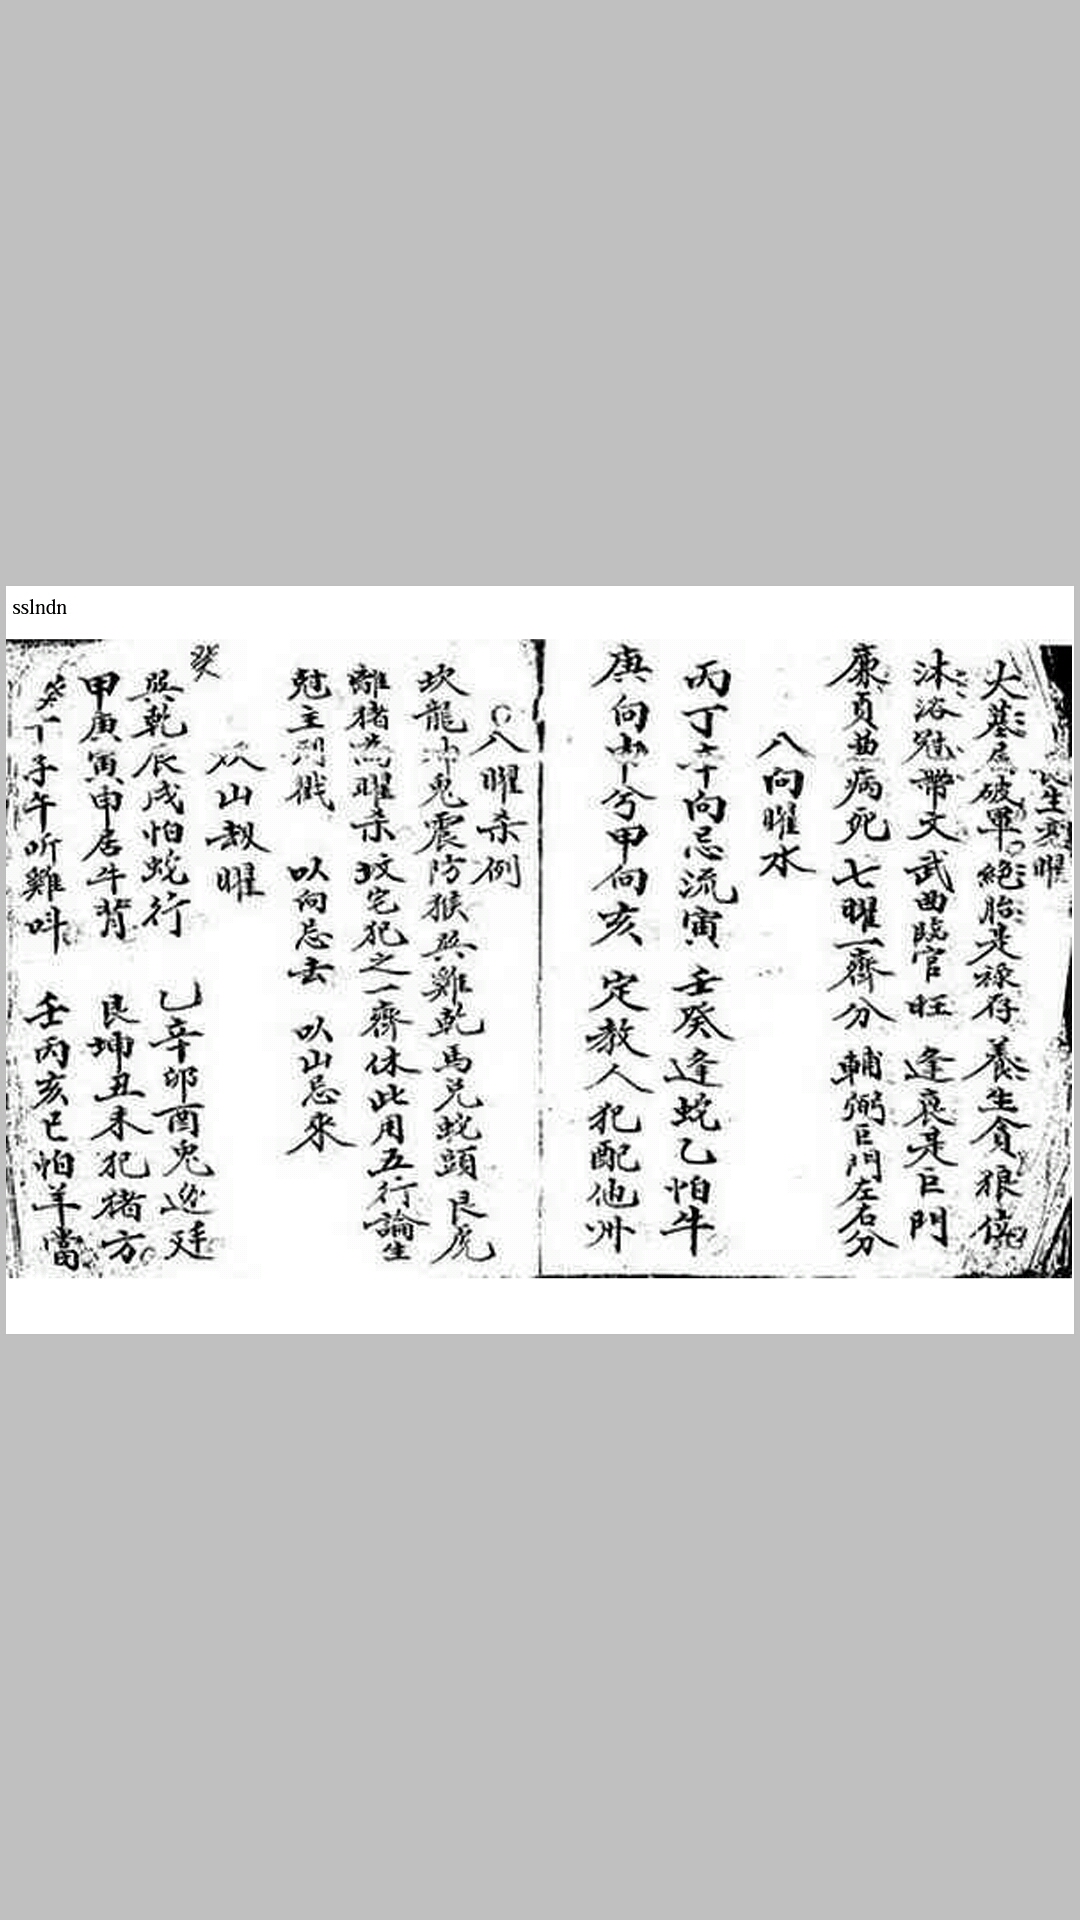 sslndn
長生兼曜
火墓居破軍絕胎是祿存 養生貪狼位
沐浴冠帶文 武曲臨官旺 逢衰是巨門
廉貞兼病死 七曜一齊分 輔弼巨門左右分
八向曜水
丙丁辛向忌流寅 壬癸逢蛇乙怕牛
庚向申兮甲向亥 定教人犯配他州
八曜杀例
坎龍冲兔震防猴巽雞乾馬兌蛇頭艮虎
離猪為曜杀坟宅犯之一齊休此用五行論生
尅主刑戮 以向忌去 以山忌來
癸
山刼曜
巽乾辰戌怕蛇行 乙辛卯酉兔迯廷
甲庚寅申居牛背 艮坤丑未犯猪方
癸丁子午听雞呌 壬丙亥巳怕羊當